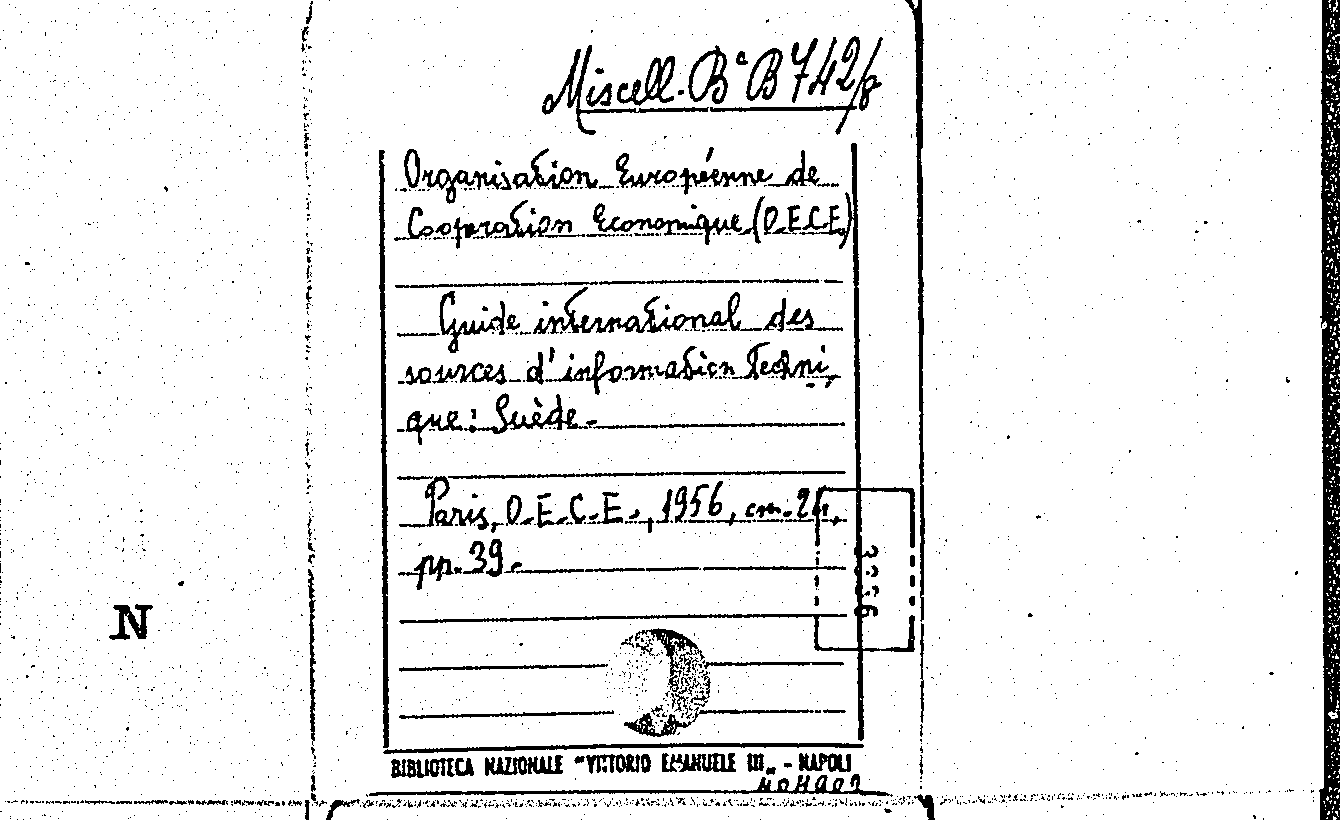 Miscell. Bª B 742/8
Organisation Européenne de
Cooperation Economique (O.E.C.E.)
Guide international des
sources d'information Techni-
que: Suède.-
Paris, O.E.C.E., 1956, cm. 24,
pp. 39.-
3336
N
BIBLIOTECA NAZIONALE "VITTORIO EMANUELE III„ - NAPOLI